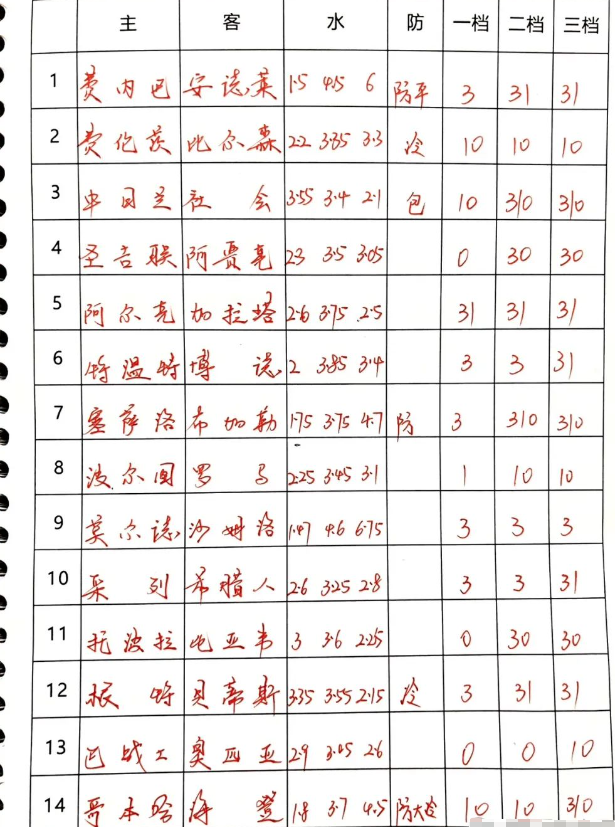 主 客 水 防 一档 二档 三档
1 费内巴 安德莱 1.5 4.5 6 防平 3 31 31
2 费伦茨 比尔森 2.2 3.35 3.3 冷 10 10 10
3 中日兰 社会 3.55 3.4 2.1 包 10 310 310
4 圣吉联 阿贾克 2.3 3.5 3.05 0 30 30
5 阿尔克 加拉塔 2.6 3.75 2.5 31 31 31
6 特温特 博德 2 3.85 3.4 3 3 31
7 塞萨洛 布加勒 1.75 3.75 4.7 防 3 310 310
8 波尔图 罗马 2.25 3.45 3.1 1 10 10
9 莫尔德 沙姆洛 1.47 4.6 6.75 3 3 3
10 采列 希腊人 2.6 3.25 2.8 3 3 31
11 托波拉 比亚韦 3 3.6 2.25 0 30 30
12 根特 贝蒂斯 3.35 3.55 2.15 冷 3 31 31
13 巴战工 奥匹亚 2.9 3.45 2.6 0 0 10
14 哥本哈 海登 1.8 3.7 4.5 防大冷 10 10 310